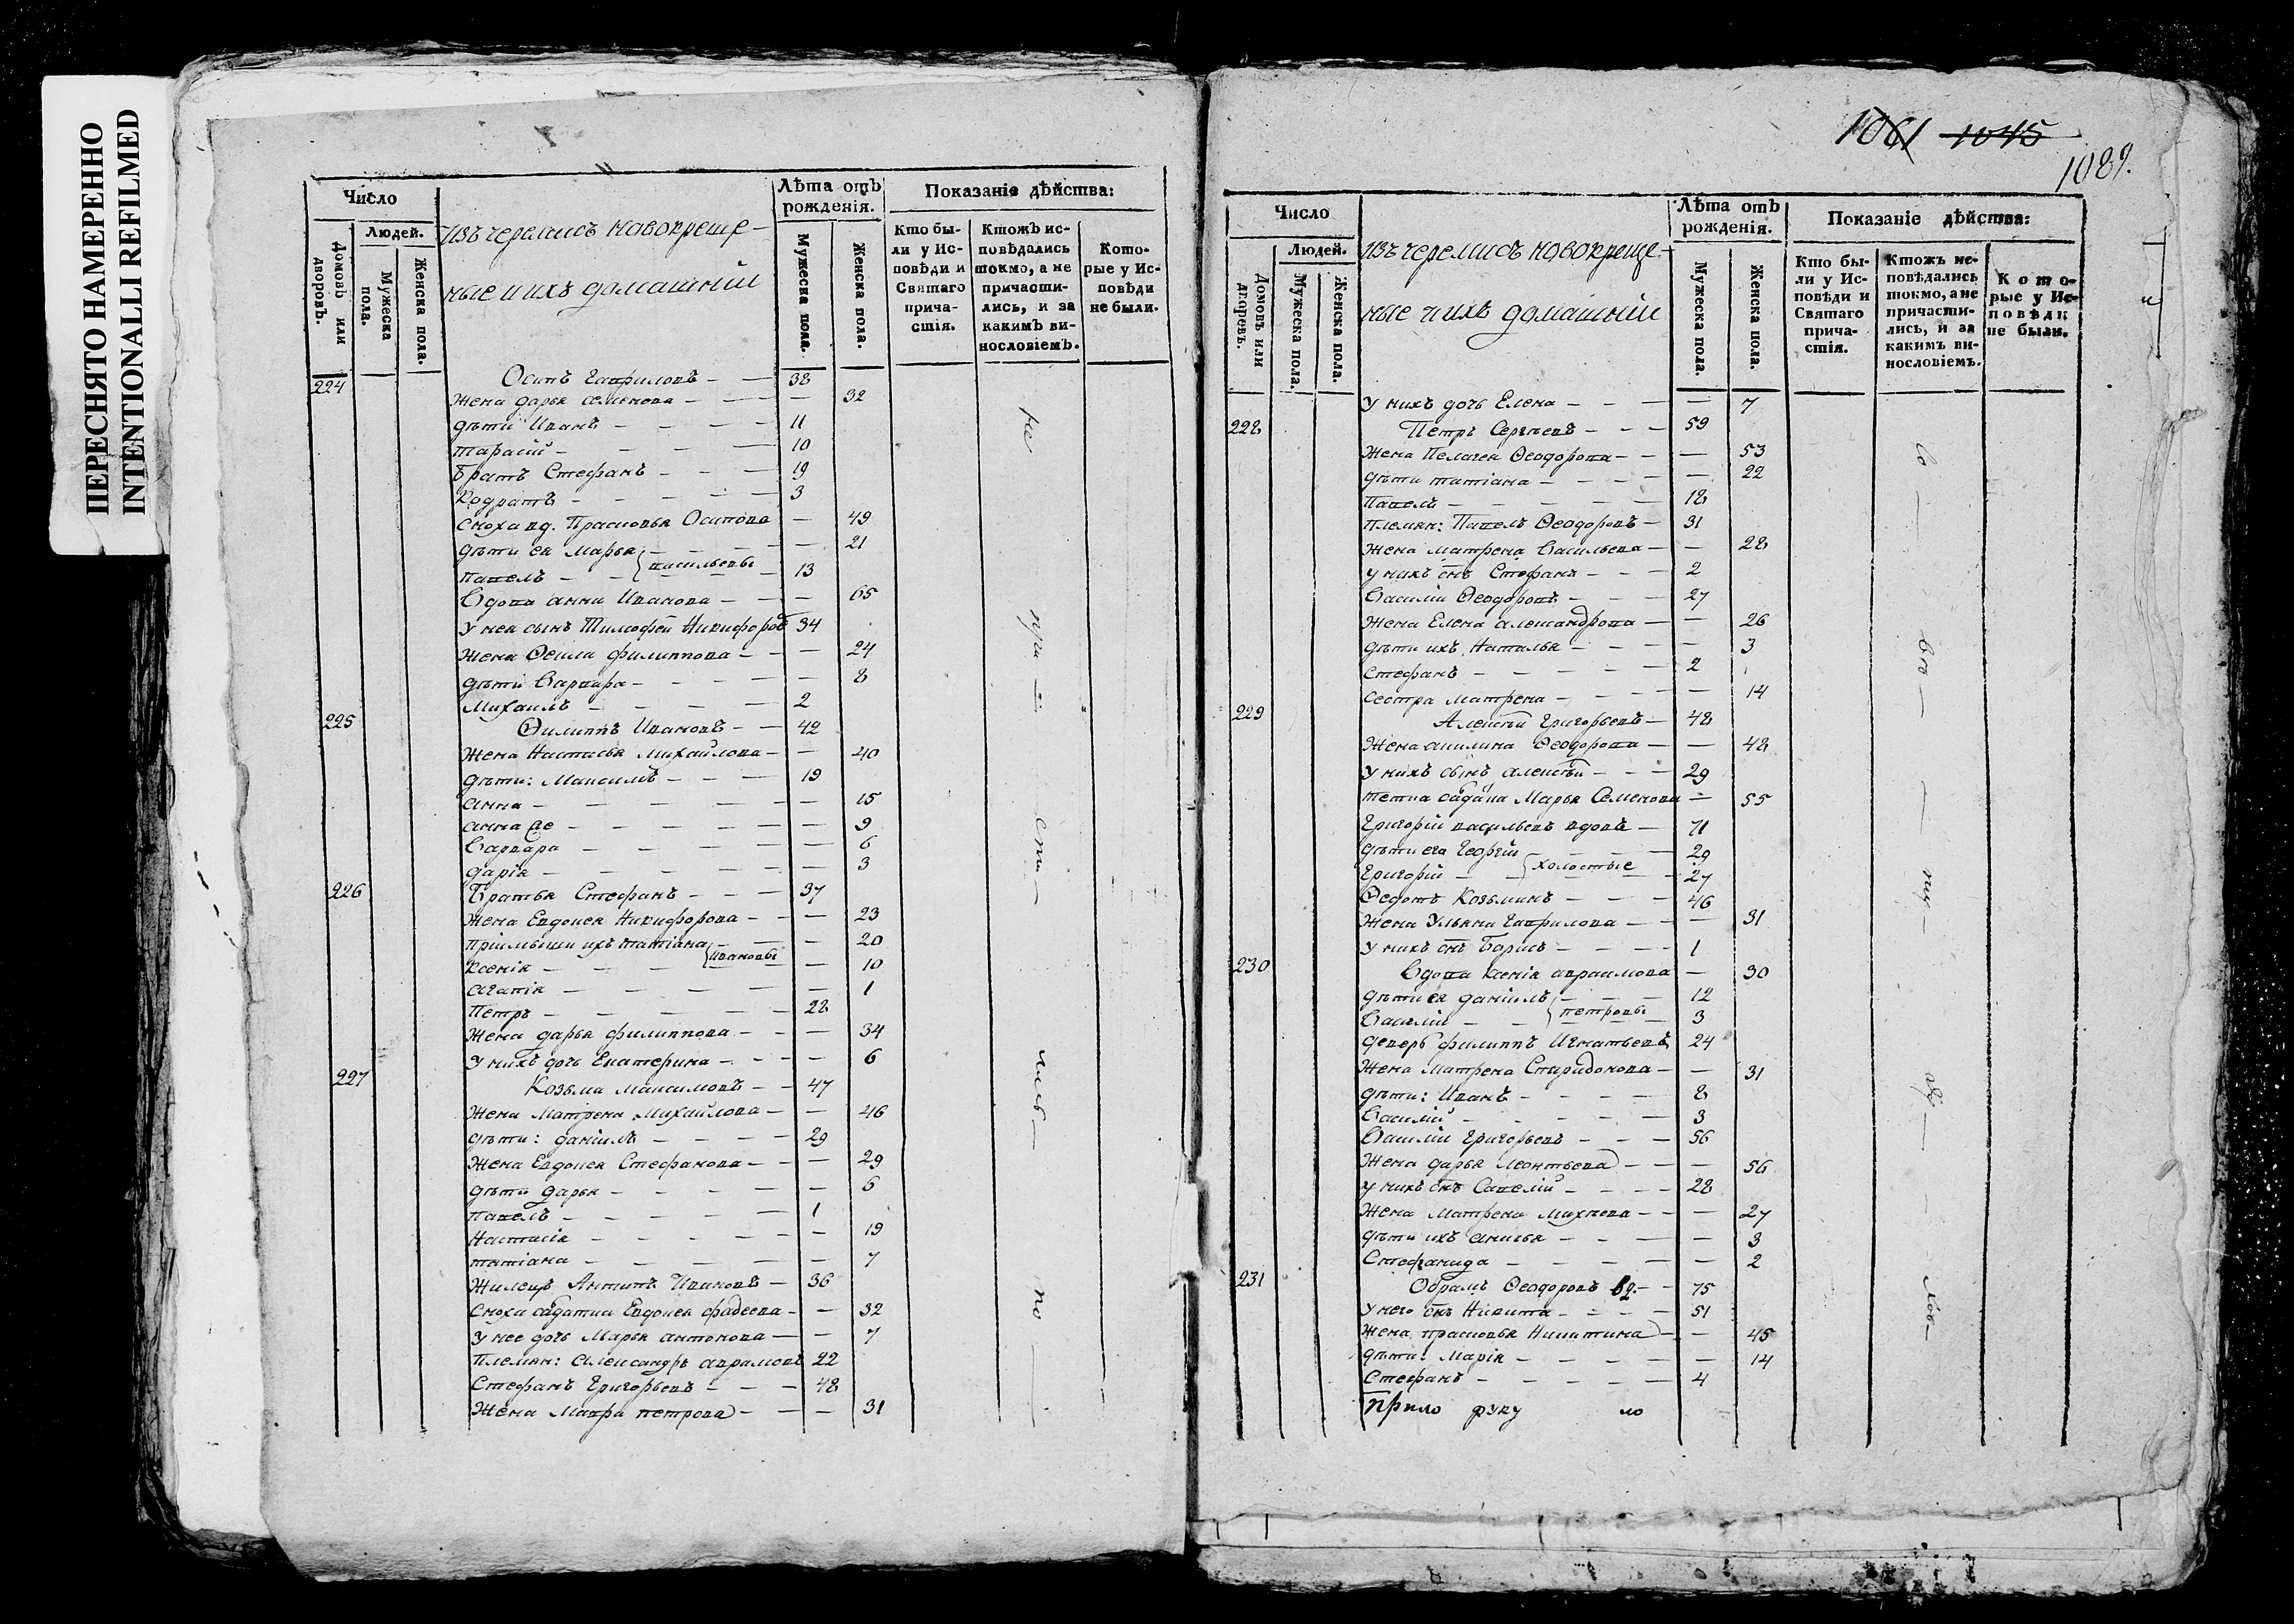 ПЕРЕСНЯТО НАМЕРЕННО
INTENTIONALLI REFILMED
Число
Людей.
Домовъ или дворовъ.
Мужеска пола.
Женска пола.
Изъ черемисъ новокреще-
ные и ихъ домашніи
Лѣта отъ рожденія.
Мужеска пола.
Женска пола.
Показаніе дѣйства:
Кто бы-
ли у Ис-
повѣди и
Святаго
прича-
стія.
Ктожъ ис-
повѣдались
токмо, а не
причасти-
лись, и за
какимъ ви-
нословіемъ.
Кото-
рые у Ис-
повѣди
не были.
224 Осипъ Гавриловъ - - 38
Жена дарья семенова - - - 32
дѣти Иванъ - - - 11
тарасій - - - 10
братъ Стефанъ - - - 19
Кодратъ - - - 3
сноха вд. Прасковья Осипова - 49
дѣти ея Марья - - - 21
павелъ - - васильевы - 13
Вдова анна Иванова - - - 65
У нея сынъ Тимофей Никифоровъ 34
жена Ѳекла филиппова - - - 24
дѣти Варвара - - - 8
Михаилъ - - - 2
225 Филиппъ Ивановъ - - 42
Жена Настасья Михайлова - - 40
дѣти: Максимъ - - - 19
анна - - - 15
анна же - - - 9
Варвара - - - 6
дарія - - - 3
226 Братья Стефанъ - - - 37
Жена Евдокея Никифорова - - - 23
пріимыши ихъ татіана - - - 20
Ксенія - - - Ивановы - 10
агапія - - - 1
Петръ - - - 28
Жена дарья филиппова - - - 34
У нихъ дочь Екатерина - - - 6
227 Козьма максимовъ - - 47
Жена Матрена Михайлова - - 46
дѣти: даніилъ - - - 29
Жена Евдокея Стефанова - - - 29
дѣти дарья - - - 6
павелъ - - - 1
Настасія - - - 19
татіана - - - 7
Жилецъ Антипъ Ивановъ - 36
Сноха солдатка Евдокея фадеева - - 32
У нее дочь Марья антонова - - 7
Племян: Александръ аврамовъ 22
Стефанъ Григорьевъ - - - 48
Жена Мавра петрова - - - 31
не
при
сти
лись
по
1061 1045
1089.
Число
Людей.
Домовъ или дворовъ.
Мужеска пола.
Женска пола.
Изъ черемисъ новокреще-
ные и ихъ домашніи
Лѣта отъ рожденія.
Мужеска пола.
Женска пола.
Показаніе дѣйства:
Кто бы-
ли у Ис-
повѣди и
Святаго
прича-
стія.
Ктожъ ис-
повѣдались
токмо, а не
причасти-
лись, и за
какимъ ви-
нословіемъ.
Кото-
рые у Ис-
повѣди
не были.
У нихъ дочь Елена - - - 7
228 Петръ Сергѣевъ - - - 59
Жена Пелагея Ѳеодорова - - - 53
дѣти татіана - - - 22
Павелъ - - - 18
племян: Павелъ Ѳеодоровъ - 31
Жена матрена Васильева - - 28
у нихъ снъ Стефанъ - - - 2
Василій Ѳеодоровъ - - - 27
Жена Елена александрова - - 26
дѣти ихъ Наталья - - - 3
Стефанъ - - - 2
сестра матрена - - - 14
229 Алексѣй Григорьевъ - 48
Жена акилина Ѳеодорова - - 48
У нихъ сынъ алексѣй - - - 29
тетка Марья Семенова - 55
Григорій васильевъ вдовъ - 71
дѣти его Георгій - - - 29
Григорій - - холостые - 27
Ѳедотъ Козьминъ - - - 46
Жена Ульяна Гаврилова - - - 31
У нихъ снъ Борисъ - - - 1
230 Вдова ксенія аврамова - 30
дѣти ея даніилъ - - - 12
Василій - - петровы - 3
деверь филиппъ Игнатьевъ 24
Жена Матрена Спиридонова - - 31
дѣти: Иванъ - - - 8
Василій - - - 3
Василій Григорьевъ - - - 56
Жена дарья леонтьева - - - 56
у нихъ снъ Савелій - - - 28
Жена матрена Михеева - - - 27
дѣти ихъ - - - 3
Стефанида - - - 2
231 Обрамъ Ѳеодоровъ вд. - 75
У него снъ Никита - - - 51
Жена прасковья Никитина - - 45
дѣти: Марія - - - 14
Стефанъ - - - 4
прило руку